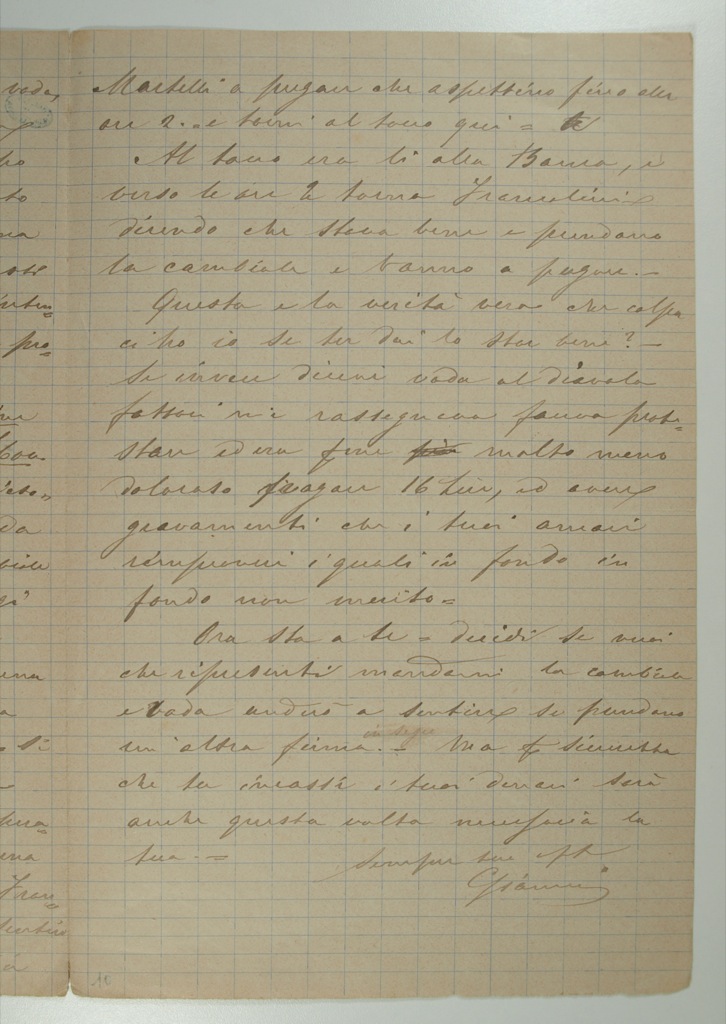 Martelli a pregare che aspettino fino alle
ore 2. = e torni al tocco qui =
Al tocco era lì alla Banca, e
verso le ore 2 torna Francolini
dicendo che stava bene e prendano
la cambiale e vanno a pagare. -
Questa e la verità vera che colpa
ci ho io se ter dai lo star bene? -
Se invece dicevi vada al diavolo
fattori mi rassegnava faceva prote=
stare ed era fine molto meno
doloroso pagare 16 Lire, ed avere
gravamenti che i tuoi amari
rimproveri i quali in fondo in
fondo non merito =
Ora sta a te = decidi se vuoi
che ripresenti mandami la cambiale
e vada andrò a sentire se prendano
un'altra firma. - Ma
che tu incassi i tuoi denari sarà
anche questa volta necessaria la
tua - =
Sempre tuo aff
Gianni
vada,
ho
sto
pro=
da
Fran=
sentire
10